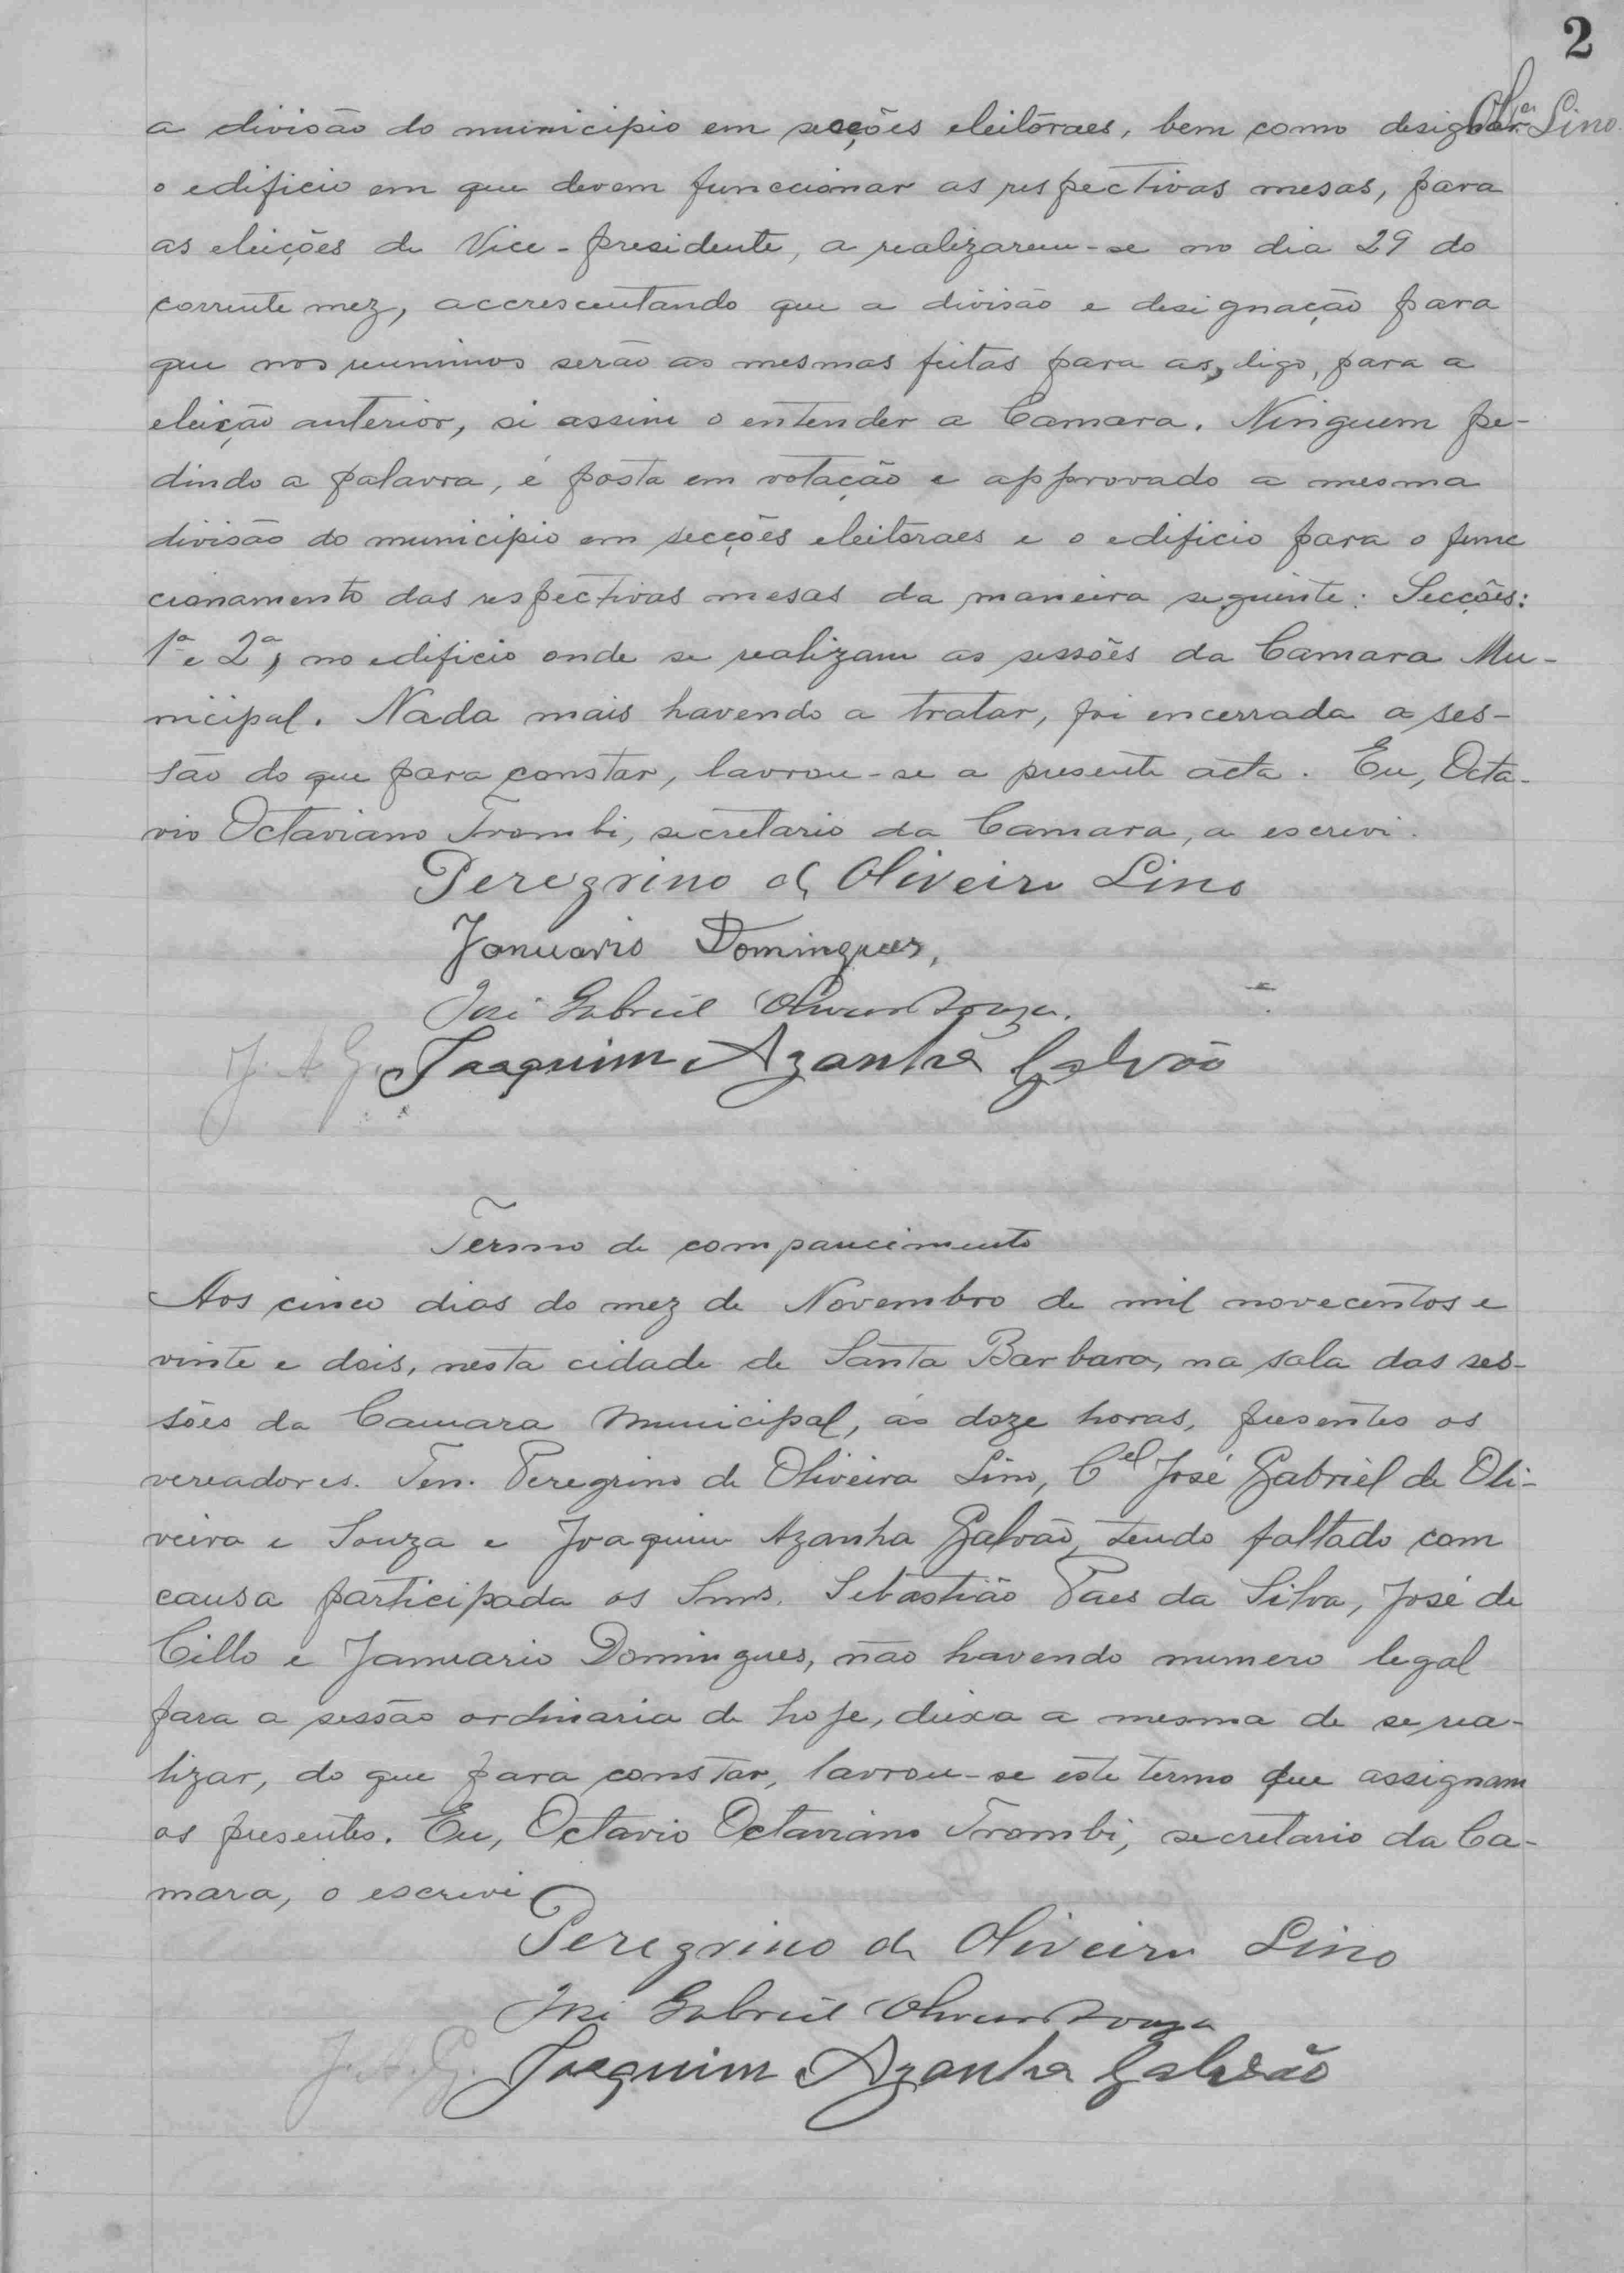 2
Olª Lino
a divisão do municipio em secções eleitoraes, bem como designar
o edificio em que devem funccionar as respectivas mesas, para
as eleições de Vice-presidente, a realizarem-se no dia 29 do
corrente mez, accrescentando que a divisão e designação para
que nos reunimos serão as mesmas feitas para as, digo, para a
eleição anterior, si assim o entender a Camara. Ninguem pe-
dindo a palavra, é posta em votação e approvado a mesma
divisão do municipio em secções eleitoraes e o edificio para o func
cionamento das respectivas mesas da maneira seguinte: Secções:
1ª e 2ª, no edificio onde se realizam as sessões da Camara Mu-
nicipal. Nada mais havendo a tratar, foi encerrada a ses-
são do que para constar, lavrou-se a presente acta. Eu, Octa-
vio Octaviano Trombi, secretario da Camara, a escrevi.
Peregrino de Oliveira Lino
Januario Domingues,
José Gabriel Oliveira Souza.
J. A. G. Joaquim Azanha Galvão
Termo de comparecimento
Aos cinco dias do mez de Novembro de mil novecentos e
vinte e dois, nesta cidade de Santa Barbara, na sala das ses-
sões da Camara Municipal, ás doze horas, presentes os
vereadores. Ten. Peregrino de Oliveira Lino, Cel José Gabriel de Oli-
veira e Souza e Joaquim Azanha Galvão, tendo faltado com
causa participada os Snrs. Sebastião Paes da Silva, José de
Cillo e Januario Domingues, não havendo numero legal
para a sessão ordinaria de hoje, deixa a mesma de se rea-
lizar, do que para constar, lavrou-se este termo que assignam
os presentes. Eu, Octavio Octaviano Trombi, secretario da Ca-
mara, o escrevi
Peregrino de Oliveira Lino
José Gabriel Oliveira Souza
J. A. G. Joaquim Azanha Galvão